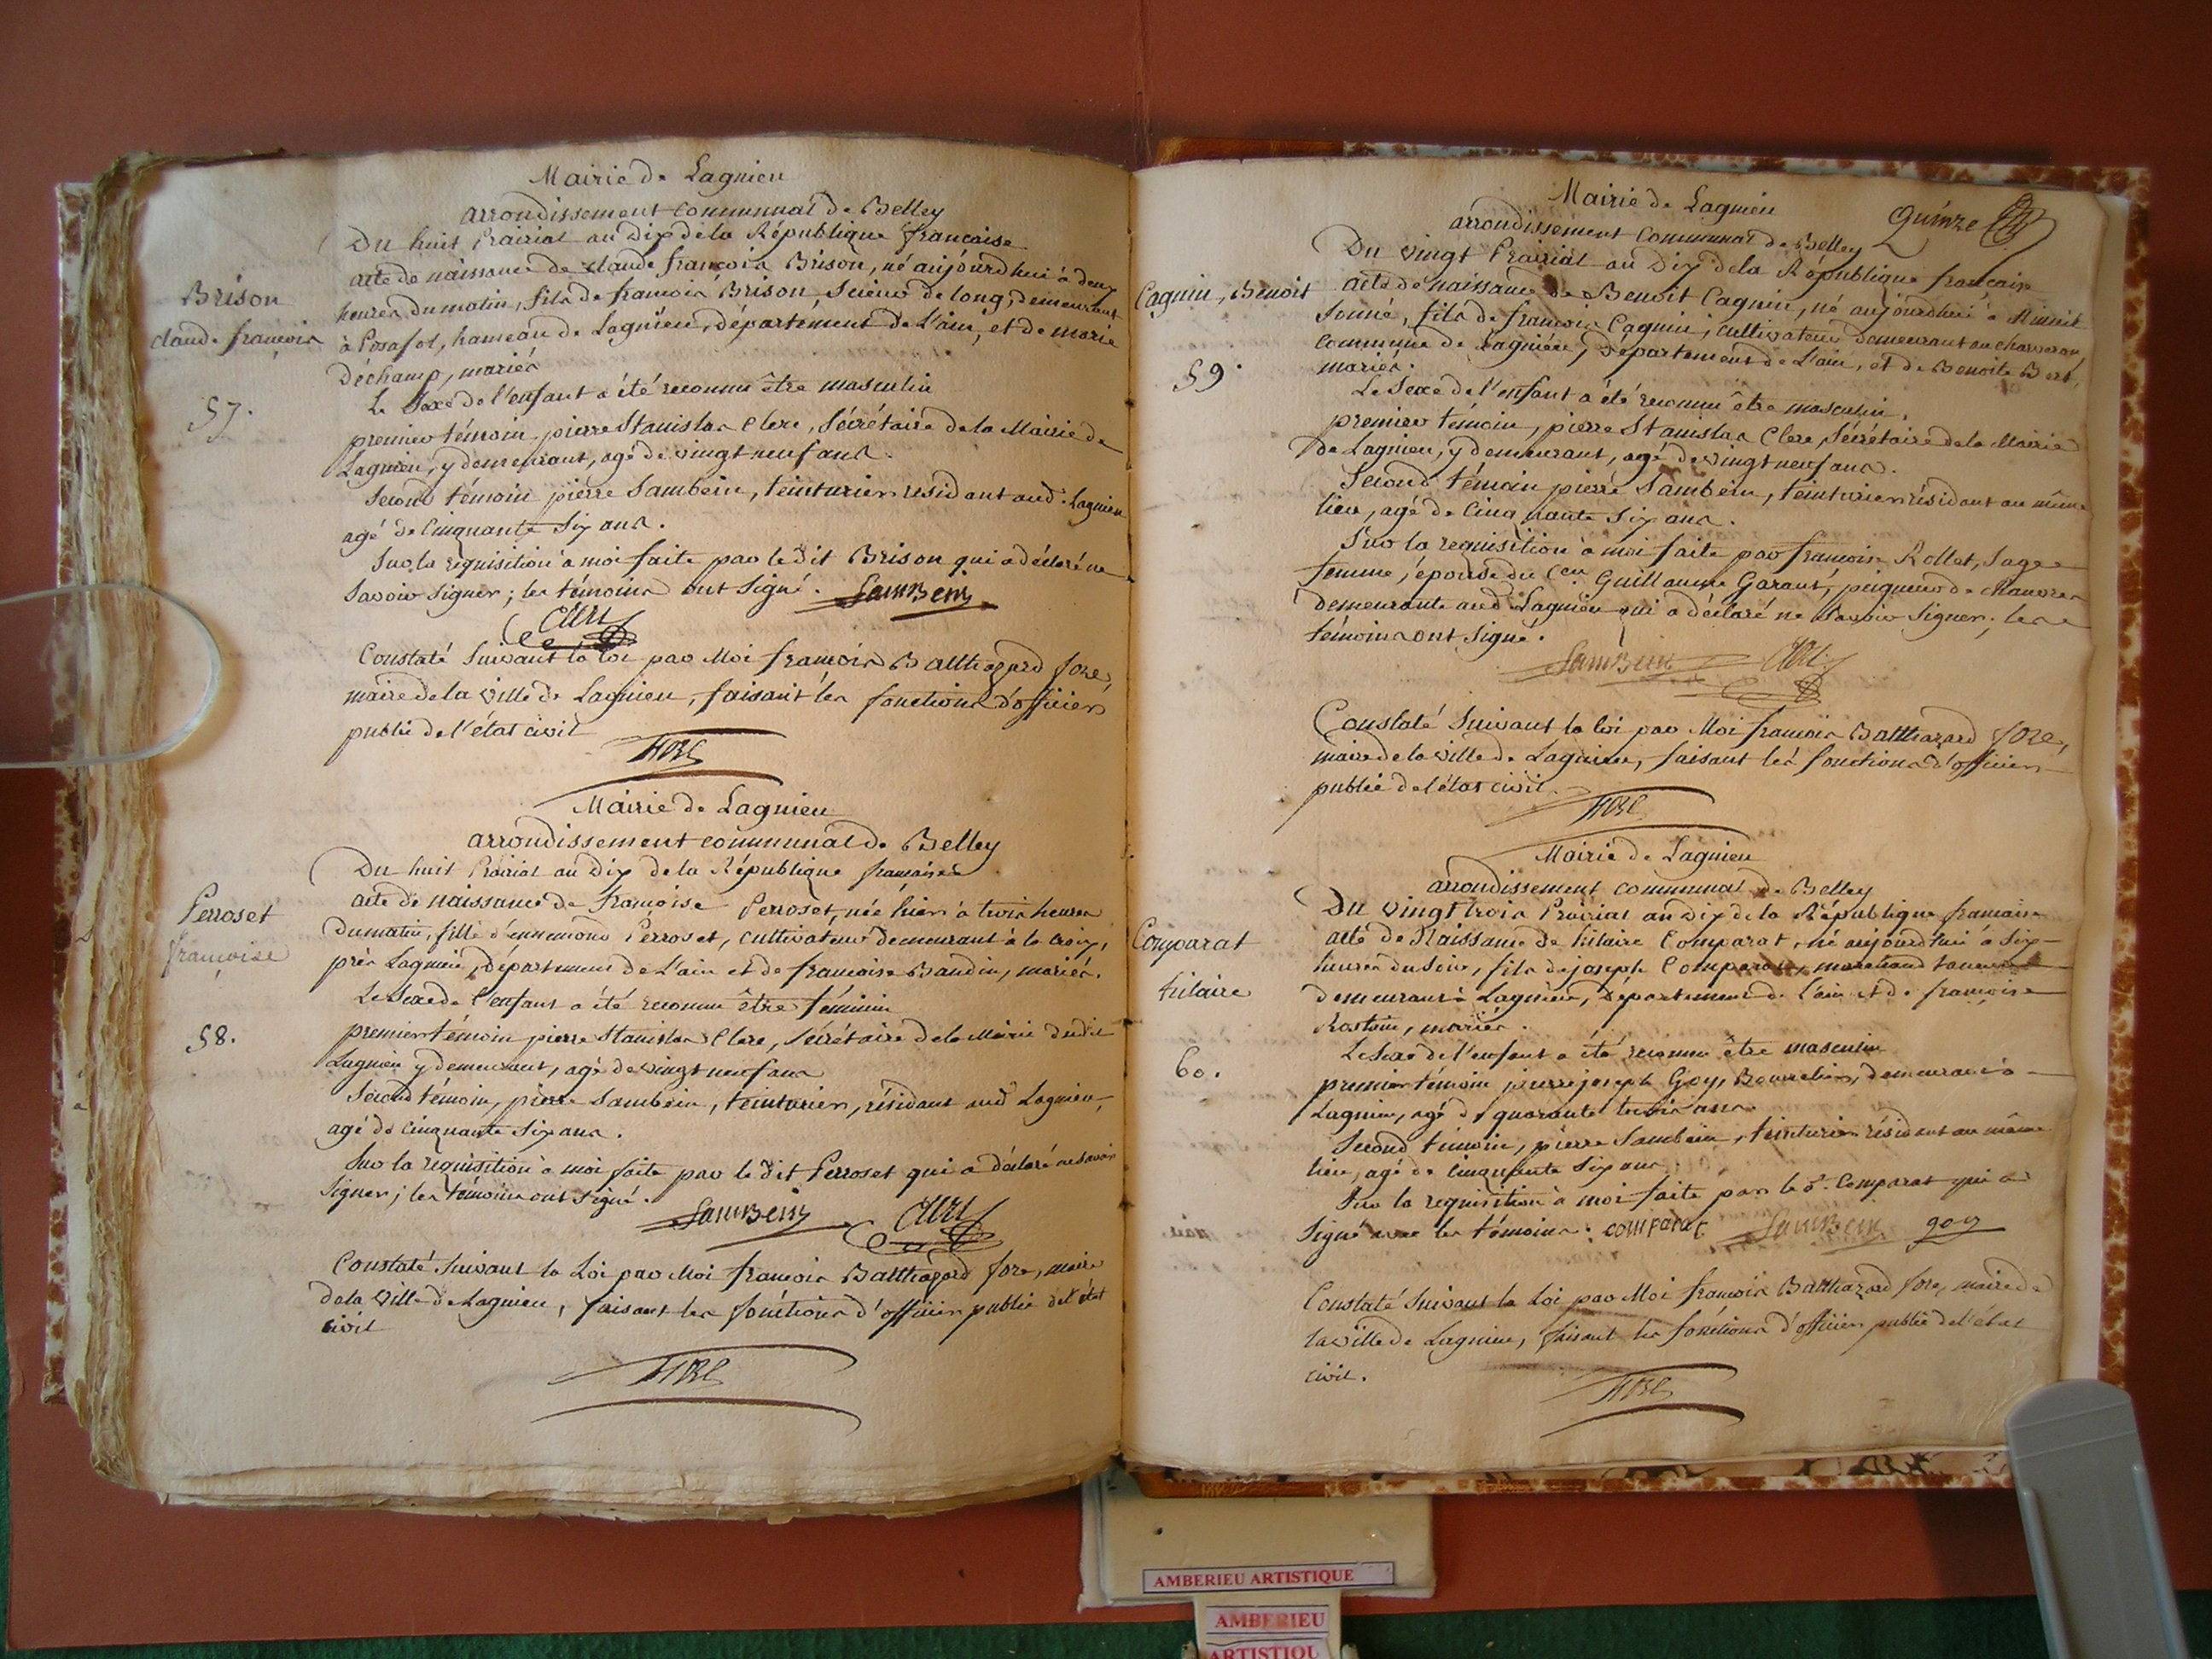 Mairie de Lagnieu
arrondissement communnal de Belley
Du huit Prairial an Dix de la République francaise
acte de naissance de claude françois Brison, né aujourd'hui à deux
heures du matin, fils de francois Brison, Scieur de long, demeurant
à Posafol, hameau de Lagnieu, département de L'ain, et de marie
Dechamp, mariés
Brison
claude françois
57.
Le Sexe de l'enfant a été reconnu être masculin
premier témoin pierre Stanislas Clerc, Sécrétaire de la Mairie de
Lagnieu, y demeurant, agé de vingt neuf ans.
Second témoin pierre Sambein, teinturier résidant aud. Lagnieu
agé de Cinquante Six ans.
Sur la requisition à moi faite par le dit Brison qui a déclaré ne
Savoir Signer; les témoins ont Signé. SamBein
Clerc
Constaté Suivant la loi par Moi francois Balthazard fore,
maire de la ville de Lagnieu, faisant les fonctions d'officier
public de l'état civil
fore
Mairie de Lagnieu
arrondissement communnal de Belley
Du huit Prairial an Dix de la République francaise
acte de naissance de francoise Perroset, née hier à trois heures
du matin, fille d'ennemond Perroset, cultivateur demeurant à la croix,
près Lagnieu, département de L'ain et de francoise Baudin, mariés.
Perroset
françoise
58.
Le Sexe de l'enfant a été reconnu être féminin
premier témoin pierre Stanislas Clerc, Sécrétaire de la Mairie dudit
Lagnieu y demeurant, agé de vingt neuf ans
Second témoin, pierre Sambein, teinturier, résidant aud Lagnieu,
agé de cinquante Six ans.
Sur la requisition à moi faite par le dit Perroset qui a déclaré ne savoir
Signer; les témoins ont signé.
SamBein Clerc
Constaté Suivant la Loi par Moi francois Balthazard fore, maire
de la ville de Lagnieu, faisant les fonctions d'officier public de l'état
civil
fore
Mairie de Lagnieu
Quinze
arrondissement communnal de Belley
Du vingt Prairial an Dix de la République francaise
Cagnin, Benoit
59.
acte de naissance de Benoit Cagnin, né aujourd'hui à Minuit
Sonné, fils de francois Cagnin, cultivateur demeurant au charveron,
commune de Lagnieu, département de L'ain, et de Benoite Bert,
mariés.
Le Sexe de l'enfant a été reconnu être masculin.
premier témoin, pierre Stanislas Clerc, Sécrétaire de la Mairie
de Lagnieu, y demeurant, agé de vingt neuf ans.
Second témoin pierre Sambein, teinturier résidant au même
lieu, agé de Cinquante Six ans.
Sur la requisition à moi faite par francoise Rollet, Sage
femme, épouse du Cen Guillaume Garant, peigneur de Chanvres
demeurante aud. Lagnieu qui a déclaré ne Savoir Signer; les
témoins ont Signé.
SamBein Clerc
Constaté Suivant la loi par Moi francois Balthazard fore,
maire de la ville de Lagnieu, faisant les fonctions d'officier
public de l'état civil.
fore
Mairie de Lagnieu
arrondissement communnal de Belley
Du vingt trois Prairial an Dix de la République francaise
Comparat
hilaire
60.
acte de Naissance de hilaire Comparat, né aujourd'hui à Six
heures du Soir, fils de joseph Comparat, marchand tanneur
demeurant à Lagnieu, département de l'ain et de francoise
Rostain, mariés.
Le Sexe de l'enfant a été reconnu être masculin
premier témoin pierre joseph Goy, Bourrelier, demeurant à
Lagnieu, agé de quarante trois ans.
Second témoin, pierre Sambein, teinturier résidant au même
lieu, agé de Cinquante Six ans
Sur la requisition à moi faite par le d. Comparat qui a
Signé avec les témoins. comparat SamBein goy
Constaté Suivant la Loi par Moi francois Balthazard fore, maire de
la ville de Lagnieu, faisant les fonctions d'officier public de l'état
civil.
fore
AMBERIEU ARTISTIQUE
AMBERIEU
ARTISTIQU